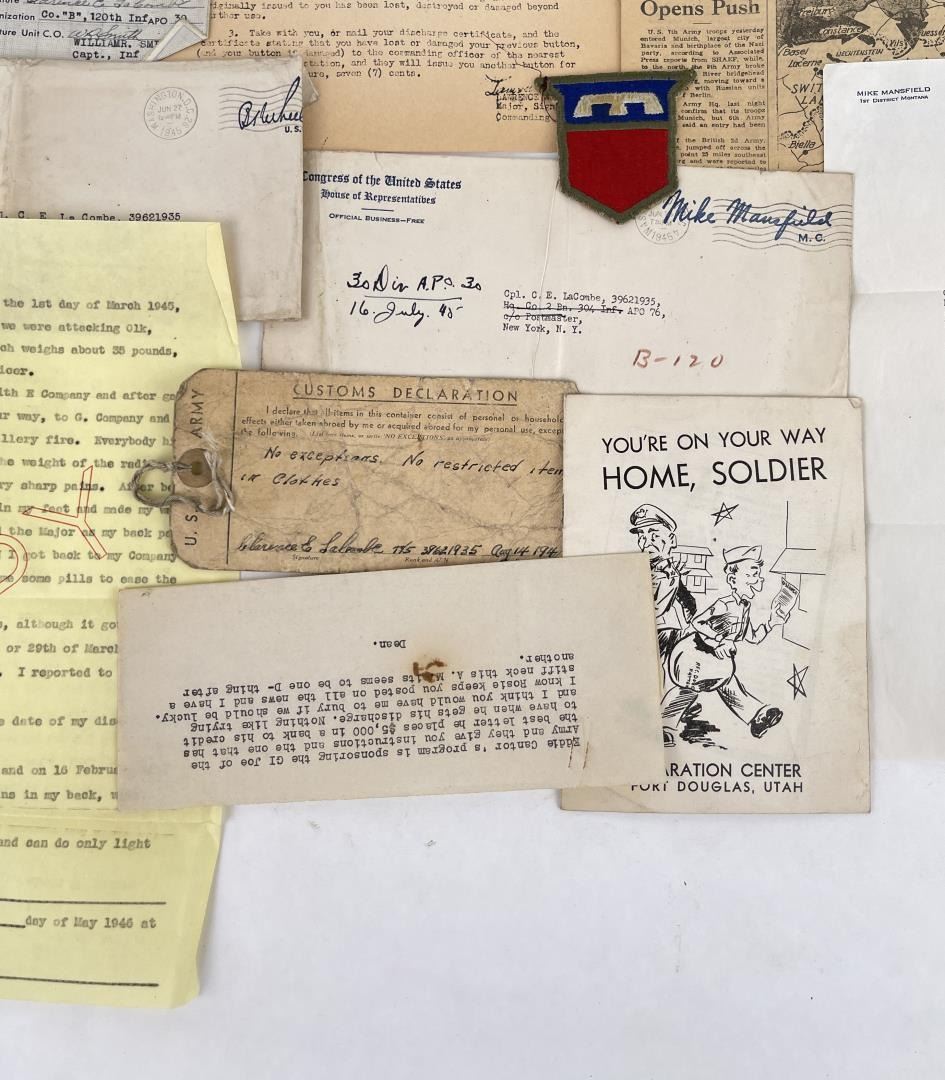 Co. "B", 120th Inf APO 30
ture Unit C.O.
WILLIAM R. SMI
Capt., Inf
iginally issued to you has been lost, destroyed or damaged beyond
rther use.
3. Take with you, or mail your discharge certificate, and the
certificate stating that you have lost or damaged your previous button,
(and your button if damaged) to the commanding officer of the nearest
station, and they will issue you another button for
ure, seven (7) cents.
LAWRENCE
Major, Sig
Commanding
Opens Push
U.S. 7th Army troops yesterday
entered Munich, largest city of
Bavaria and birthplace of the Nazi
party, according to Associated
Press reports from SHAEF, while,
to the north the 9th Army broke
River bridgehead
moving toward a
with Russian units
f Berlin.
Army Hq. last night
confirm that its troops
Munich, but 6th Army
said an entry had been
of the British 2d Army,
jumped off across the
point 25 miles southeast
rg and were reported to
Freiburg
Constance
Basel
Lucerne
LIECHTENSTEIN
SWIT
LA
Biella
MIKE MANSFIELD
1ST DISTRICT MONTANA
WASHINGTON, D.C.
JUN 27
1945
U.S.
l. C. E. La Combe, 39621935
Congress of the United States
House of Representatives
OFFICIAL BUSINESS—FREE
Mike Mansfield
M.C.
1945
30 Div A.P.O. 30
16. July. 45
Cpl. C. E. LaCombe, 39621935,
Hq. Co. 2 Bn. 304 Inf. APO 76,
c/o Postmaster,
New York, N. Y.
B-120
the 1st day of March 1945,
we were attacking Olk,
ch weighs about 35 pounds,
icer.
ith E Company and after ge
ur way, to G. Company and
llery fire. Everybody hi
he weight of the radi
ry sharp pains. After be
in my feet and made my w
d the Major as my back pa
d I got back to my Company
me some pills to ease the
s, although it go
or 29th of March
I reported to
e date of my dis
and on 16 Februa
ns in my back, w
and can do only light
day of May 1946 at
U.S. ARMY
CUSTOMS DECLARATION
I declare that all items in this container consist of personal or household
effects either taken abroad by me or acquired abroad for my personal use, except
the following.
No exceptions. No restricted item
in clothes
Clarence E LaCombe T/5 39621935 Aug 14 194
Signature
Rank and ASN
YOU'RE ON YOUR WAY
HOME, SOLDIER
ARATION CENTER
FORT DOUGLAS, UTAH
Eddie Cantor's program is sponsoring the GI Joe of the
Army and they give you instructions and the one that has
the best letter he places $5,000 in a bank to his credit
to have when he gets his discharge. Nothing like trying
and I think you would have me to bury if we should be lucky.
I know Rosie keeps you posted on all the news and I have a
stiff neck this A. M. its seems to be one D- thing after
another.
Dean.